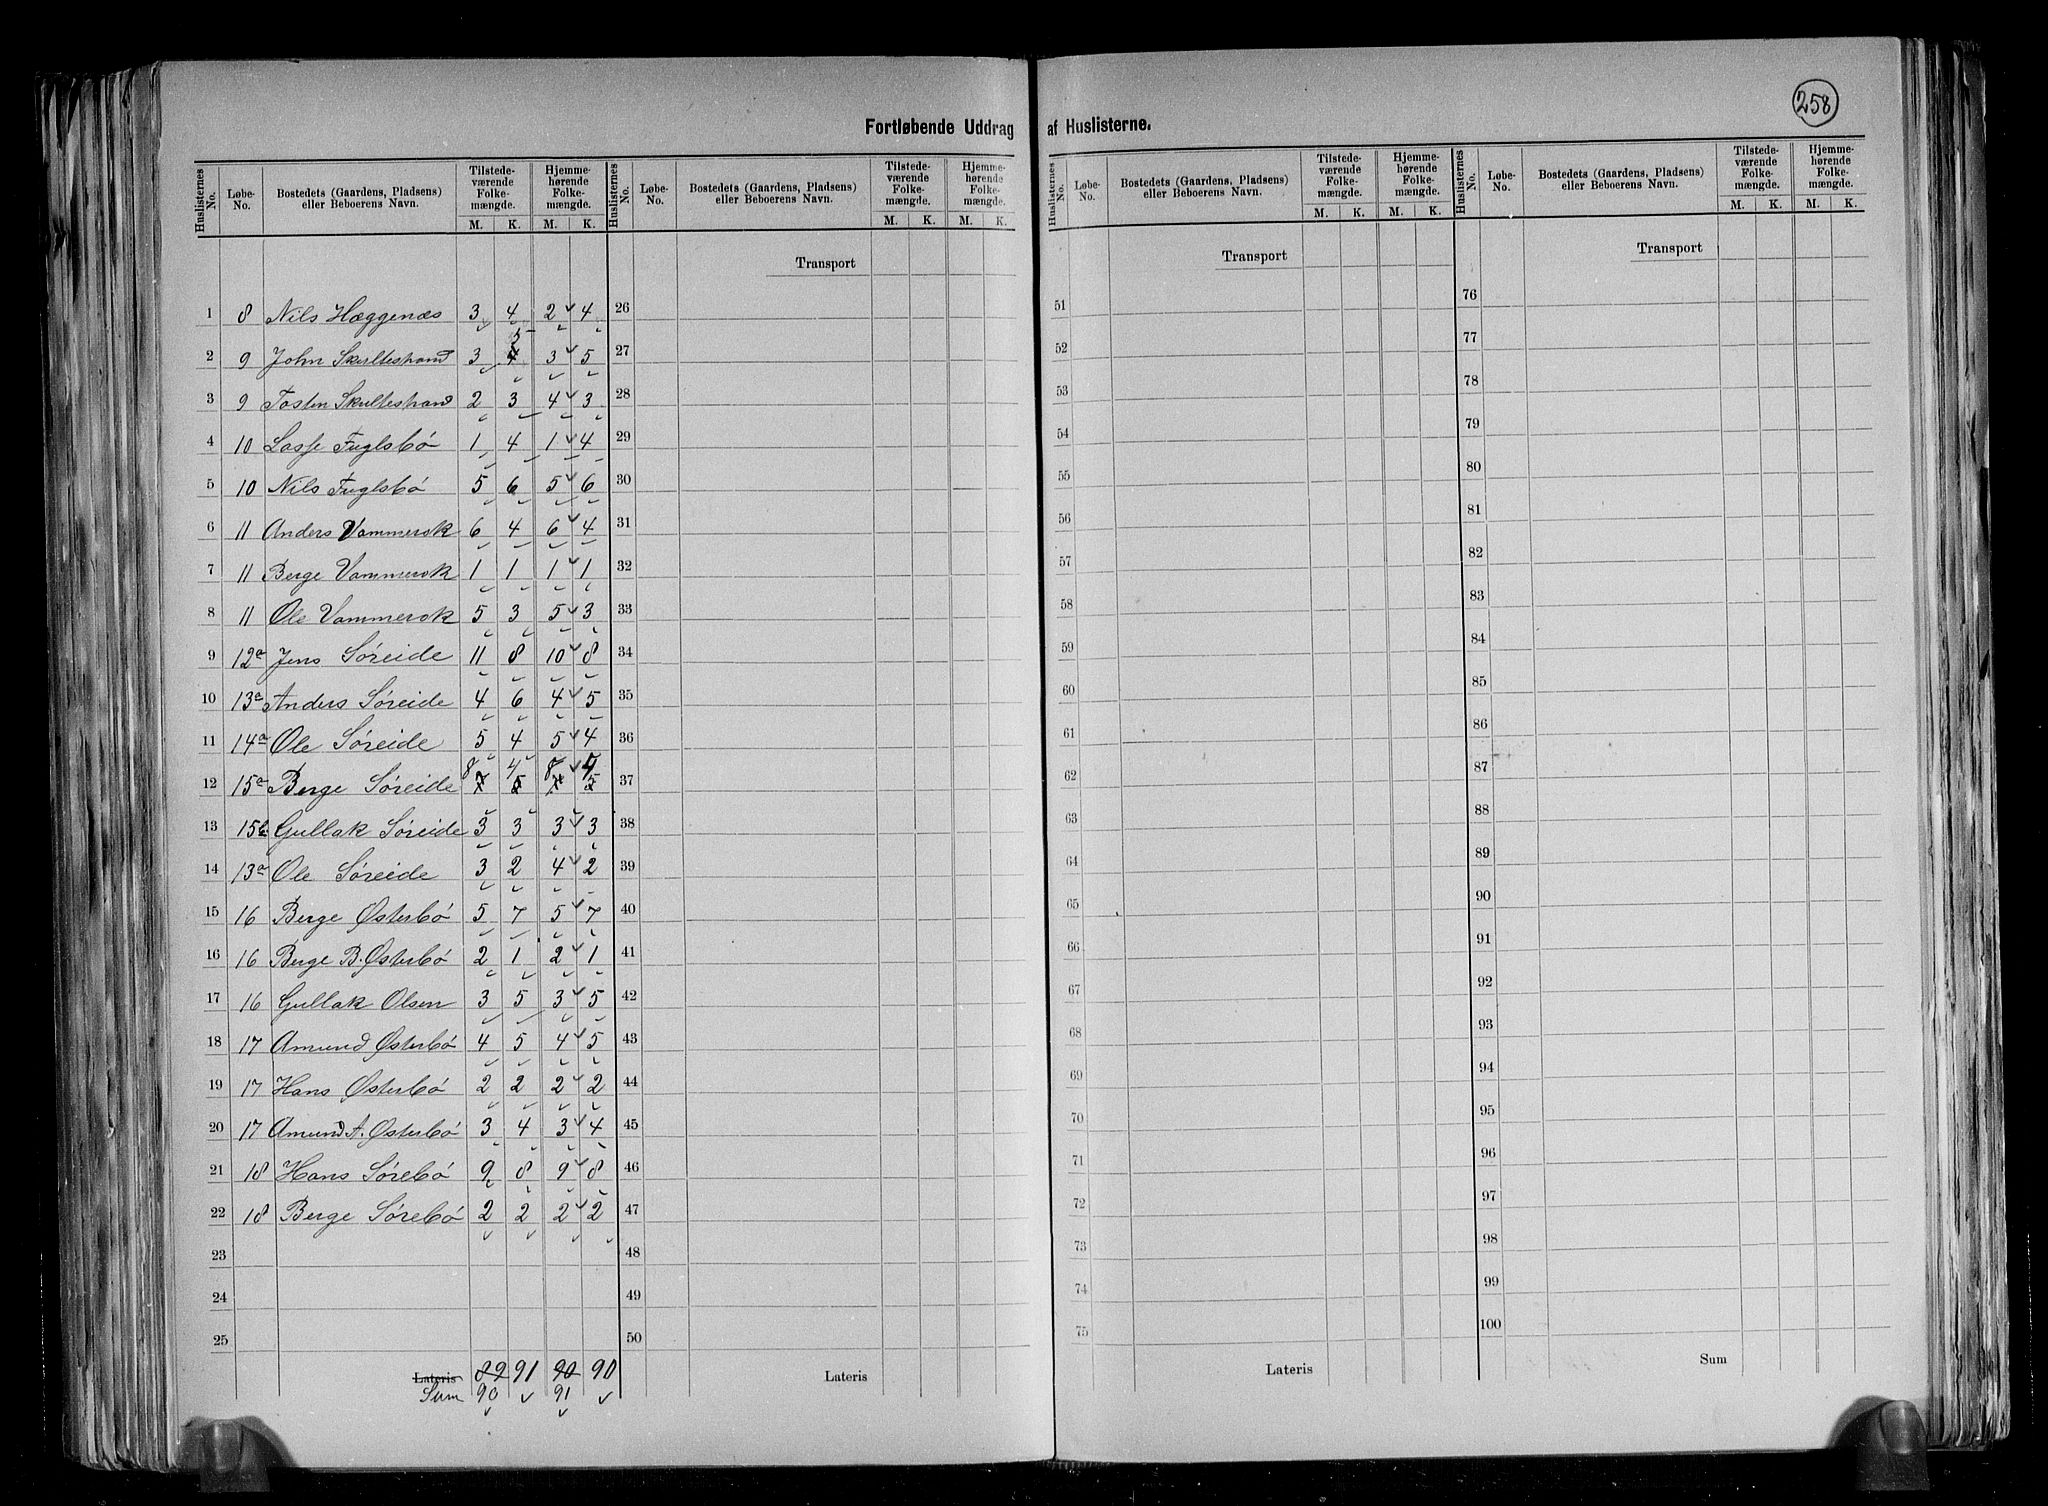 258
Fortløbende Uddrag af Huslisterne.
Huslisternes No. Løbe-No. Bostedets (Gaardens, Pladsens) eller Beboerens Navn. Tilstedeværende Folkemængde. M. K. Hjemmehørende Folkemængde. M. K.
Huslisternes No. Løbe-No. Bostedets (Gaardens, Pladsens) eller Beboerens Navn. Tilstedeværende Folkemængde. M. K. Hjemmehørende Folkemængde. M. K.
Huslisternes No. Løbe-No. Bostedets (Gaardens, Pladsens) eller Beboerens Navn. Tilstedeværende Folkemængde. M. K. Hjemmehørende Folkemængde. M. K.
Huslisternes No. Løbe-No. Bostedets (Gaardens, Pladsens) eller Beboerens Navn. Tilstedeværende Folkemængde. M. K. Hjemmehørende Folkemængde. M. K.
Transport Transport Transport
1 8 Nils Hæggenæs 3 4 2 4 26 51 76
5
2 9 John Skultestrand 3 4 3 5 27 52 77
3 9 Tosten Skultestrand 2 3 4 3 28 53 78
4 10 Lasse Fuglsbø 1 4 1 4 29 54 79
5 10 Nils Fuglsbø 5 6 5 6 30 55 80
6 11 Anders Vammersok 6 4 6 4 31 56 81
7 11 Berge Vammersok 1 1 1 1 32 57 82
8 11 Ole Vammersok 5 3 5 3 33 58 83
9 12a Jens Søreide 11 8 10 8 34 59 84
10 13a Anders Søreide 4 6 4 5 35 60 85
11 14a Ole Søreide 5 4 5 4 36 61 86
8 4 8 4
12 15a Berge Søreide 7 5 7 5 37 62 87
13 15b Gullak Søreide 3 3 3 3 38 63 88
14 13a Ole Søreide 3 2 4 2 39 64 89
15 16 Berge Østerbø 5 7 5 7 40 65 90
16 16 Berge B. Østerbø 2 1 2 1 41 66 91
17 16 Gullak Olsen 3 5 3 5 42 67 92
18 17 Amund Østerbø 4 5 4 5 43 68 93
19 17 Hans Østerbø 2 2 2 2 44 69 94
20 17 Amund A. Østerbø 3 4 3 4 45 70 95
21 18 Hans Sørebø 9 8 9 8 46 71 96
22 18 Berge Sørebø 2 2 2 2 47 72 97
23 48 73 98
24 49 74 99
25 50 75 100
Lateris 89 91 90 90 Lateris Lateris Sum
Sum 90 91